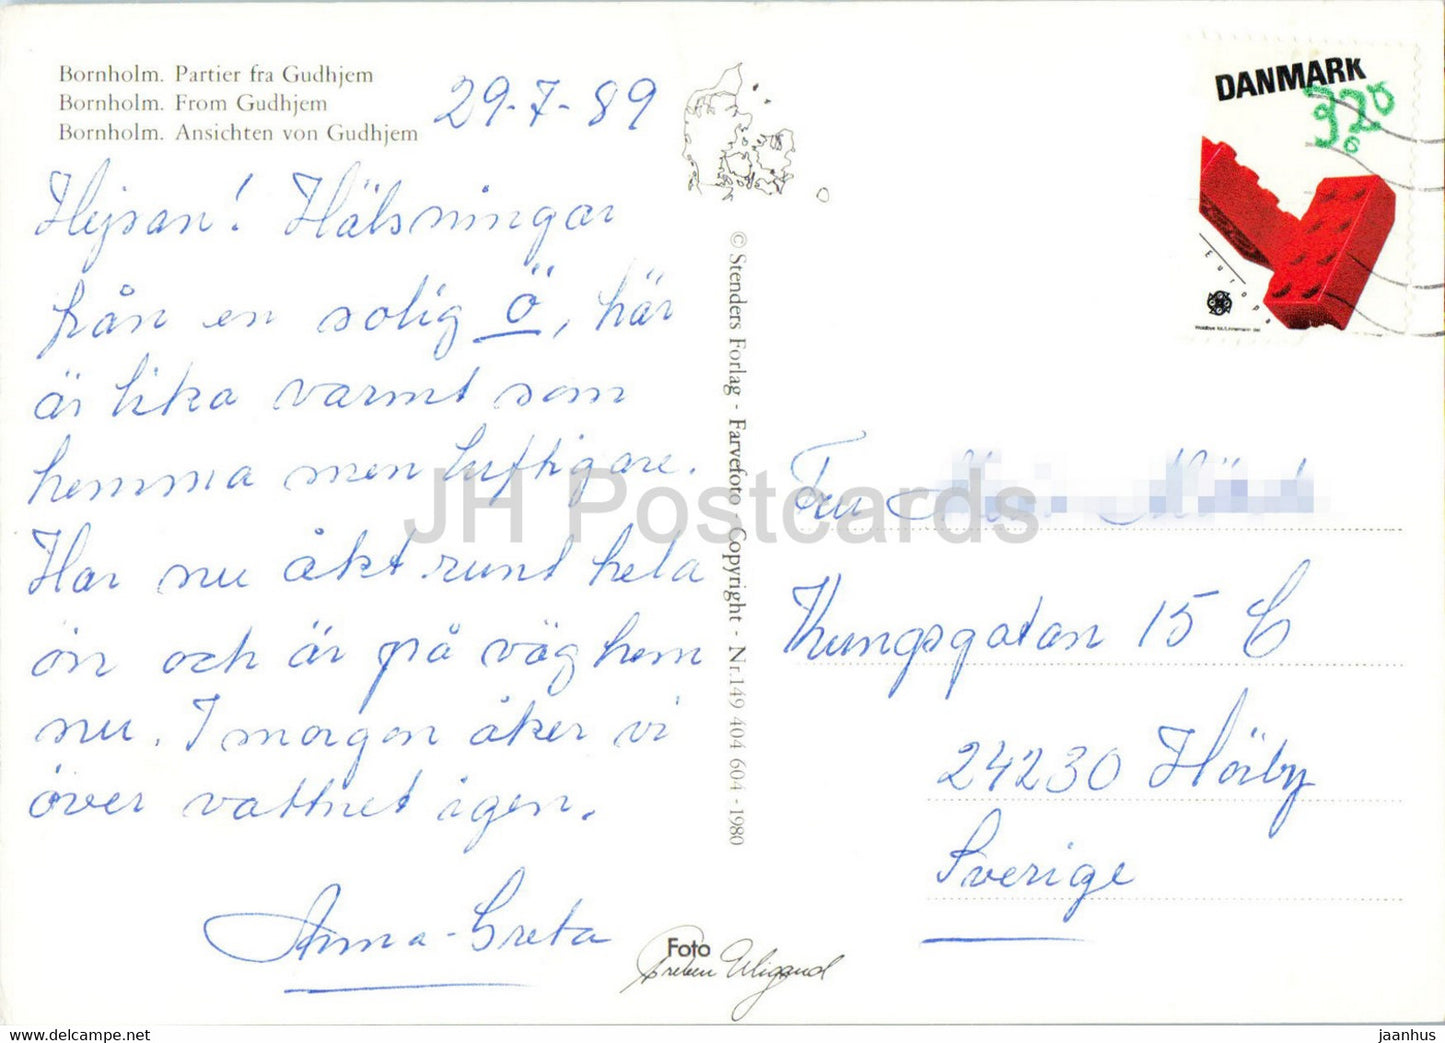 Bornholm. Partier fra Gudhjem
Bornholm. From Gudhjem
Bornholm. Ansichten von Gudhjem
29-7-89
Hejsan! Hälsningar
från en solig ö, här
är lika varmt som
hemma men luftigare.
Har nu åkt runt hela
ön och är på väg hem
nu. I morgon åker vi
över vattnet igen.
Anna-Greta
© Stenders Forlag - Farvefoto - Copyright - Nr. 149 404 604 - 1980
Foto
Preben Wigand
DANMARK
320
Europa
Fru
Kungsgatan 15 C
24230 Hörby
Sverige
JH Postcards
https://www.delcampe.net
jaanhus